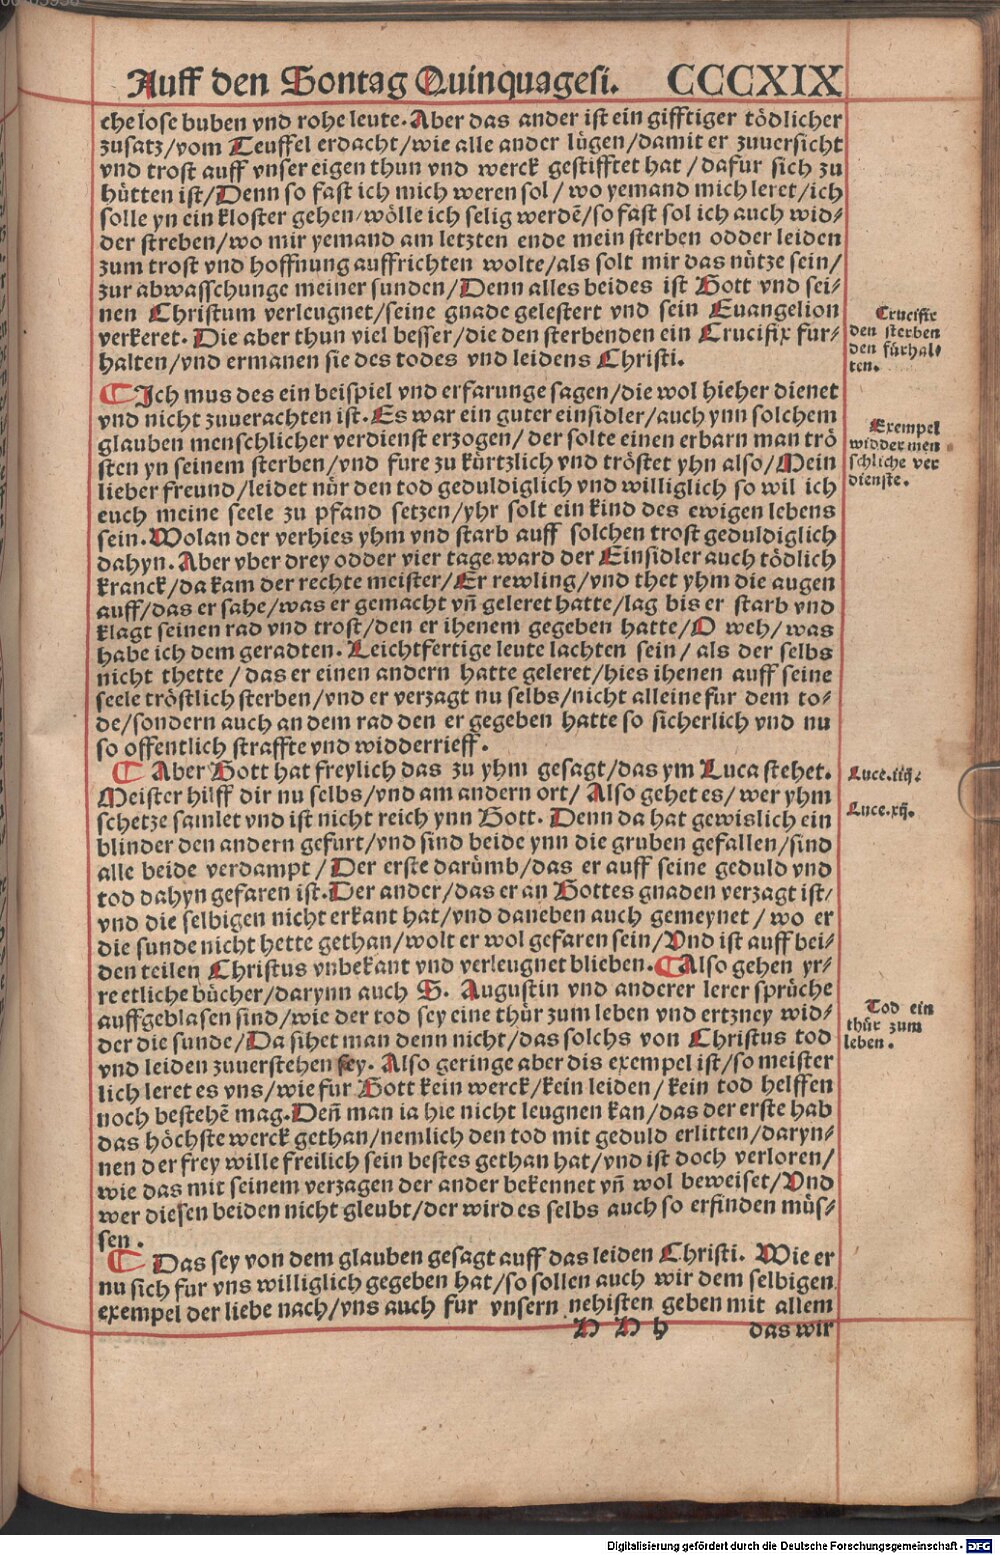 Auff den Sontag Quinquagesi. CCCXIX
che lose buben vnd rohe leute. Aber das ander ist ein gifftiger tödlicher
zusatz/vom Teuffel erdacht/wie alle ander lügen/damit er zuuersicht
vnd trost auff vnser eigen thun vnd werck gestifftet hat/dafur sich zu
hütten ist/Denn so fast ich mich weren sol/wo yemand mich leret/ich
solle yn ein kloster gehen/wölle ich selig werdē/so fast sol ich auch wid⸗
der streben/wo mir yemand am letzten ende mein sterben odder leiden
zum trost vnd hoffnung auffrichten wolte/als solt mir das nütze sein/
zur abwasschunge meiner sunden/Denn alles beides ist Gott vnd sei⸗
nen Christum verleugnet/seine gnade gelestert vnd sein Euangelion
verkeret. Die aber thun viel besser/die den sterbenden ein Crucifix fur⸗
halten/vnd ermanen sie des todes vnd leidens Christi.
Crucifix
den sterben
den fürhal⸗
ten.
¶ Ich mus des ein beispiel vnd erfarunge sagen/die wol hieher dienet
vnd nicht zuuerachten ist. Es war ein guter einsidler/auch ynn solchem
glauben menschlicher verdienst erzogen/der solte einen erbarn man trö
sten yn seinem sterben/vnd fure zu kürtzlich vnd tröstet yhn also/Mein
lieber freund/leidet nür den tod geduldiglich vnd williglich so wil ich
euch meine seele zu pfand setzen/yhr solt ein kind des ewigen lebens
sein. Wolan der verhies yhm vnd starb auff solchen trost geduldiglich
dahyn. Aber vber drey odder vier tage ward der Einsidler auch tödlich
kranck/da kam der rechte meister/Er rewling/vnd thet yhm die augen
auff/das er sahe/was er gemacht vñ geleret hatte/lag bis er starb vnd
klagt seinen rad vnd trost/den er ihenem gegeben hatte/O weh/was
habe ich dem geradten. Leichtfertige leute lachten sein/als der selbs
nicht thette/das er einen andern hatte geleret/hies ihenen auff seine
seele tröstlich sterben/vnd er verzagt nu selbs/nicht alleine fur dem to⸗
de/sondern auch an dem rad den er gegeben hatte so sicherlich vnd nu
so offentlich straffte vnd widderrieff.
Exempel
widder men
schliche ver
dienste.
¶ Aber Gott hat freylich das zu yhm gesagt/das ym Luca stehet.
Meister hilff dir nu selbs/vnd am andern ort/Also gehet es/wer yhm
schetze samlet vnd ist nicht reich ynn Gott. Denn da hat gewislich ein
blinder den andern gefurt/vnd sind beide ynn die gruben gefallen/sind
alle beide verdampt/Der erste darümb/das er auff seine geduld vnd
tod dahyn gefaren ist. Der ander/das er an Gottes gnaden verzagt ist/
vnd die selbigen nicht erkant hat/vnd daneben auch gemeynet/wo er
die sunde nicht hette gethan/wolt er wol gefaren sein/Vnd ist auff bei⸗
den teilen Christus vnbekant vnd verleugnet blieben. ¶ Also gehen yr⸗
re etliche bücher/darynn auch S. Augustin vnd anderer lerer sprüche
auffgeblasen sind/wie der tod sey eine thür zum leben vnd ertzney wid⸗
der die sunde/Da sihet man denn nicht/das solchs von Christus tod
vnd leiden zuuerstehen sey. Also geringe aber dis exempel ist/so meister
lich leret es vns/wie fur Gott kein werck/kein leiden/kein tod helffen
noch bestehē mag. Deñ man ia hie nicht leugnen kan/das der erste hab
das höchste werck gethan/nemlich den tod mit geduld erlitten/daryn⸗
nen der frey wille freilich sein bestes gethan hat/vnd ist doch verloren/
wie das mit seinem verzagen der ander bekennet vñ wol beweiset/Vnd
wer diesen beiden nicht gleubt/der wird es selbs auch so erfinden müs⸗
sen.
Luce.iiij.
Luce.xij.
Tod ein
thür zum
leben.
¶ Das sey von dem glauben gesagt auff das leiden Christi. Wie er
nu sich fur vns williglich gegeben hat/so sollen auch wir dem selbigen
exempel der liebe nach/vns auch fur vnsern nehisten geben mit allem
H H h das wir
Digitalisierung gefördert durch die Deutsche Forschungsgemeinschaft - DFG